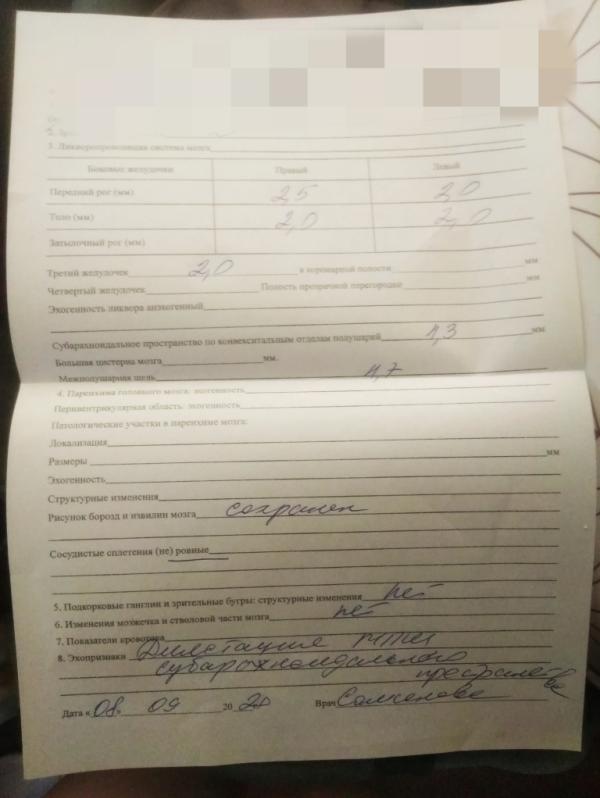 3. Ликворопроводящая система мозга
Боковые желудочки Правый Левый
Передний рог (мм) 2,5 2,0
Тело (мм) 2,0 2,0
Затылочный рог (мм)
Третий желудочек 2,0 в коронарной полости мм
Четвертый желудочек Полость прозрачной перегородки мм
Эхогенность ликвора анэхогенный
Субарахноидальное пространство по конвекситальным отделам полушарий 4,3 мм
Большая цистерна мозга мм.
Межполушарная щель 4,7
4. Паренхима головного мозга: эхогенность
Перивентрикулярная область: эхогенность
Патологические участки в паренхиме мозга:
Локализация
Размеры мм
Эхогенность
Структурные изменения
Рисунок борозд и извилин мозга сохранен
Сосудистые сплетения (не) ровные
5. Подкорковые ганглии и зрительные бугры: структурные изменения нет
6. Изменения мозжечка и стволовой части мозга нет
7. Показатели кровотока
8. Эхопризнаки Дилатация МПЩ
субарахноидального
пространства
Дата « 08. 09 20 20 Врач